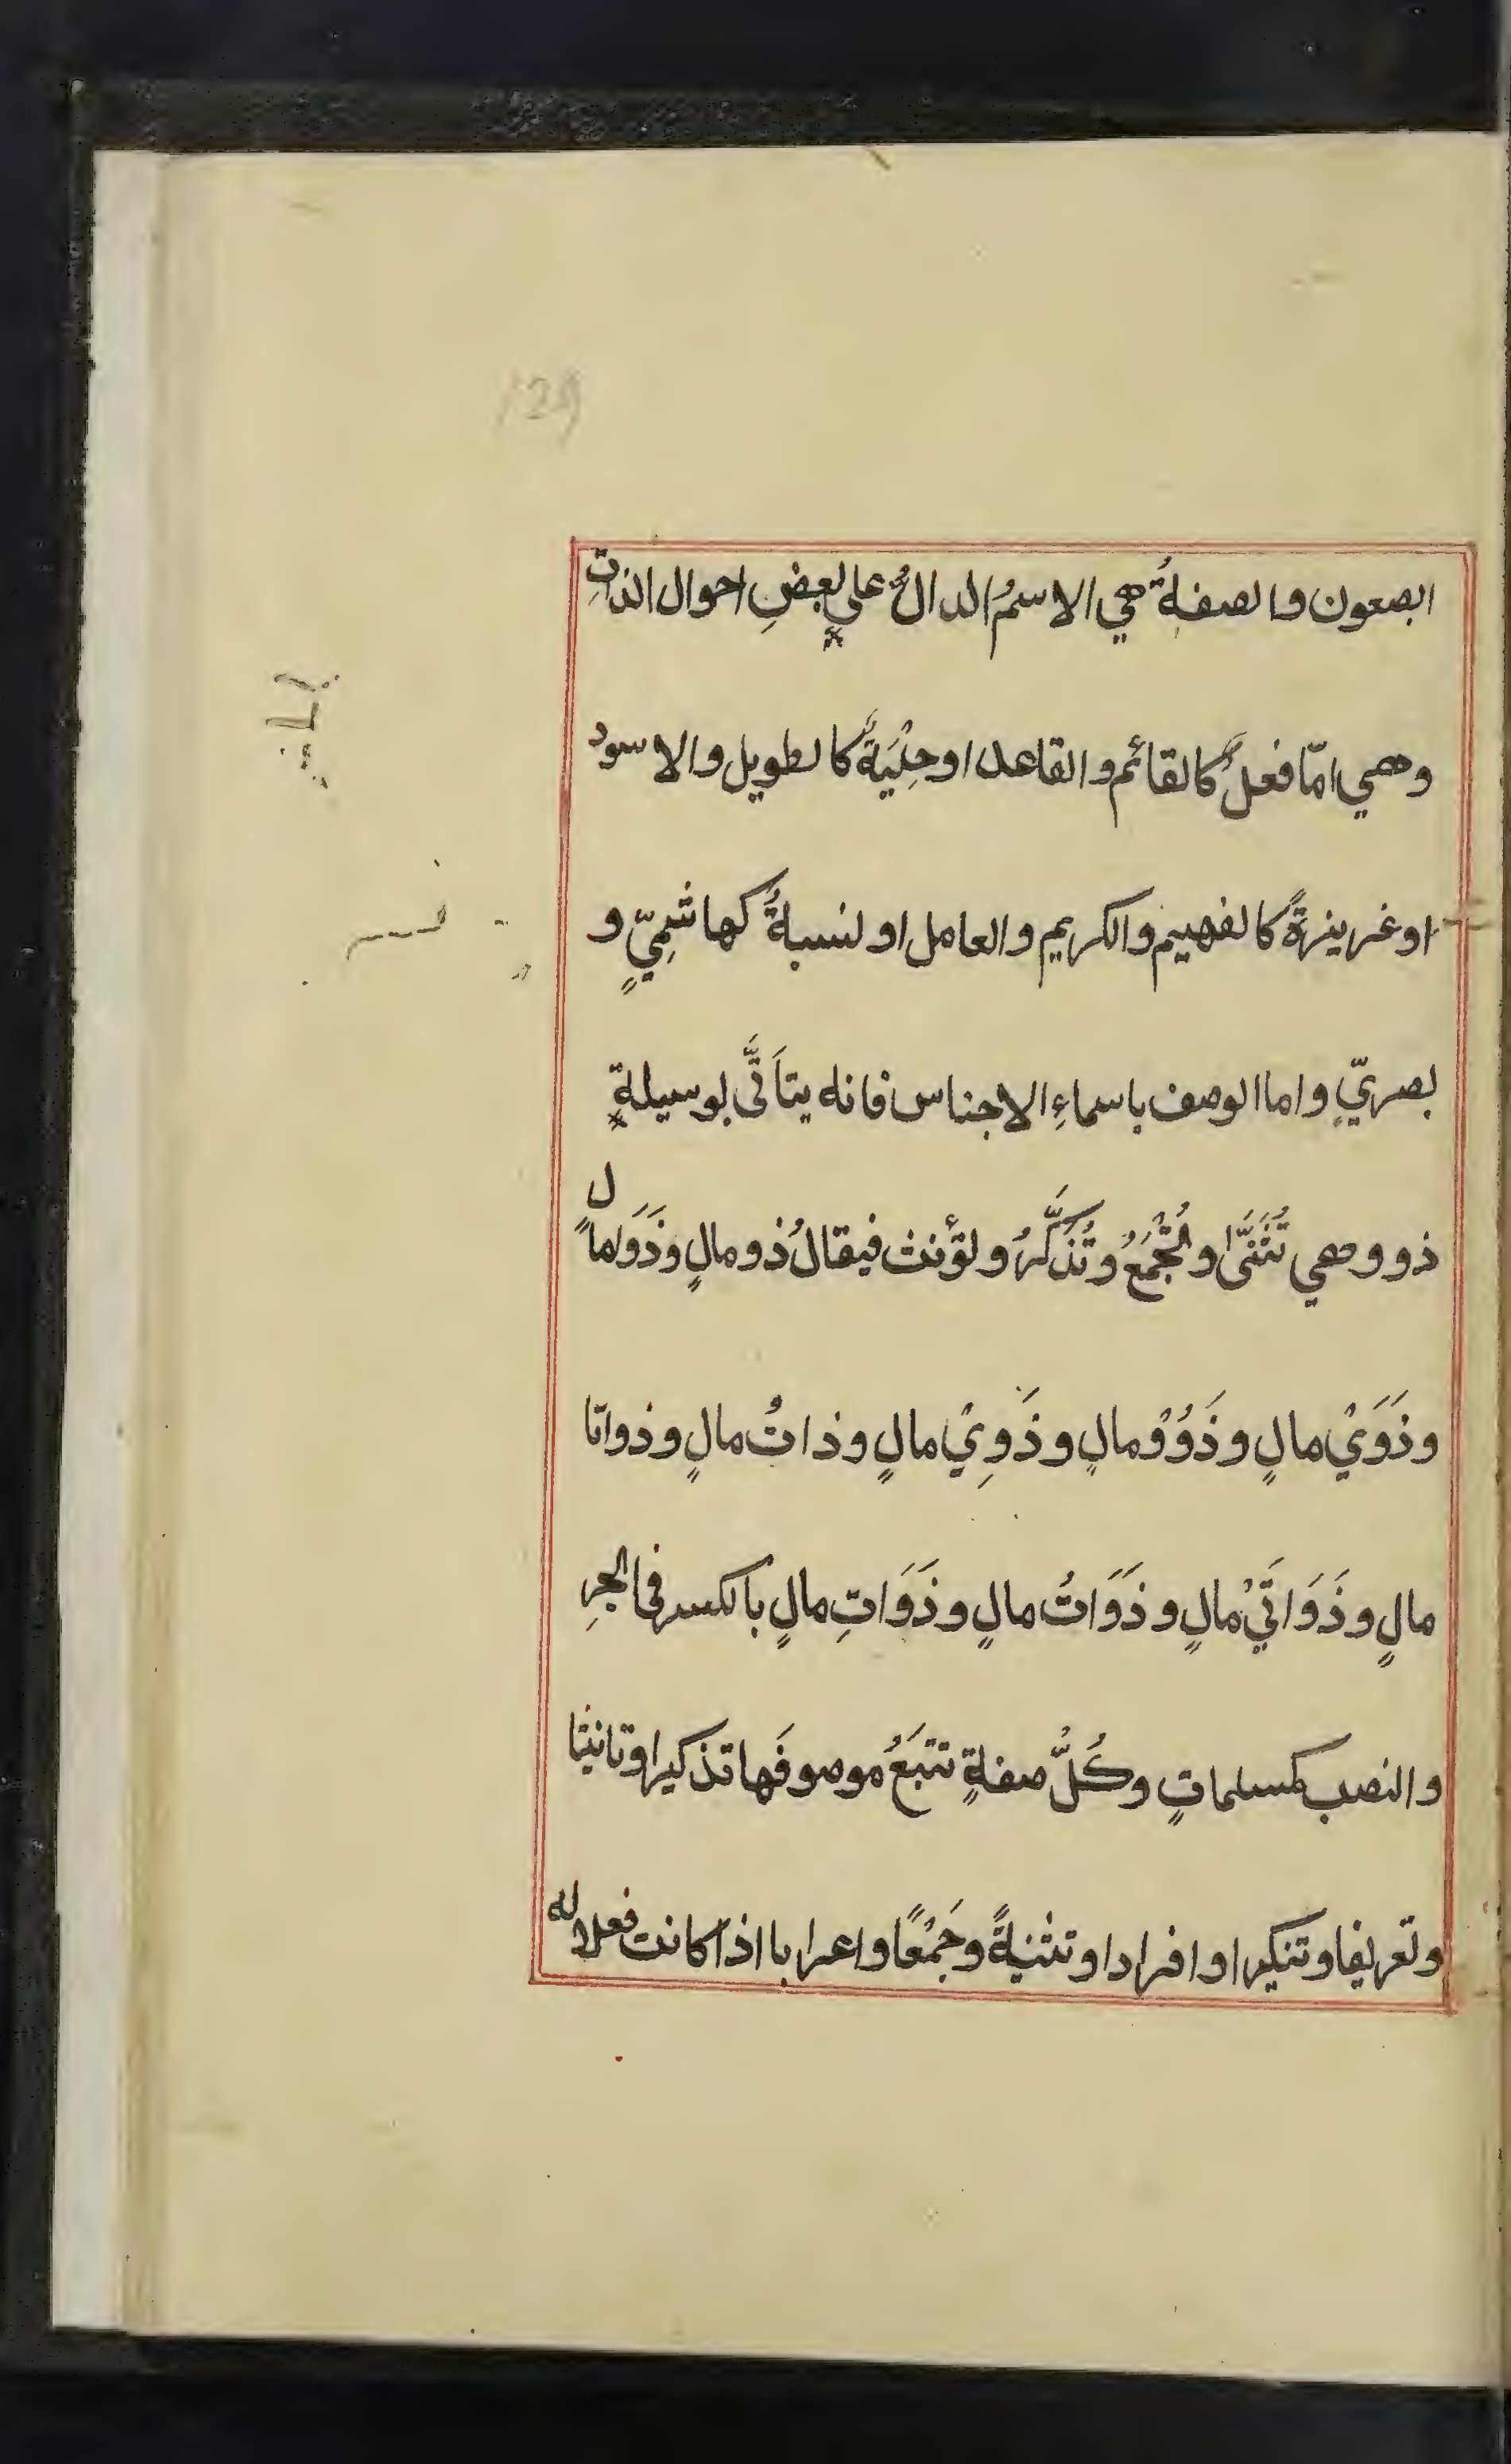 129
ابصعون والصفةُ هي الاسمُ الدالُّ على بعضِ احوال الذاتِ
وهي امّا فعلٌ كالقائم والقاعد او حِلْيَةٌ كالطويل والاسود
او غريزةً كالفهيم والكريم والعامل او نسبةً كهاشمِيٍّ و
بصريٍّ واما الوصف باسماءِ الاجناس فانه يتأَتَّى بوسيلةٍ
ذو وهي تُثَنَّى وتُجْمَعُ وتُذَكَّرُ وتؤنث فيقالُ ذو مالٍ وذَوَا مالٍ
وذَوَيْ مالٍ وذَوُوْ مالٍ وذَوِيْ مالٍ وذاتُ مالٍ وذواتا
مالٍ وذَوَاتَيْ مالٍ وذَوَاتُ مالٍ وذَوَاتِ مالٍ بالكسر فى الجرِ
والنصب كمسلماتٍ وكُلُّ صفةٍ تتبَعُ موصوفَها تذكيرا وتانيثا
وتعريفا وتنكيرا وافرادا وتثنيةً وجَمْعًا واعرابا اذا كانت فعلا له